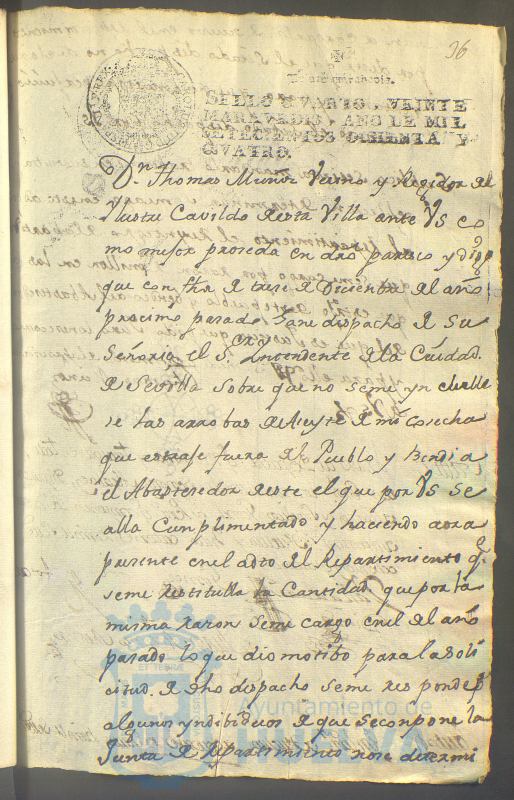 36
SELLO QVARTO, VEINTE
MARAVEDIS, AÑO DE MIL
SETECIENTOS OCHENTA Y
QVATRO.
Dn. Thomas Muñiz Vecino y Regidor del
Ylustre Cavildo de esta Villa ante VS co
mo mejor proseda en dro paresco y digo
que con fha de trese de Disiembre del año
procimo pasado Gane despacho de su
Señoria el Sr. Yntendente de la Ciudad
de Sevilla sobre que no se me yncluelle
se las arrobas de Aseyte de mi Cosecha
que estrase fuera del Pueblo y bendi a
el Abastesedor de este el que por VS se
alla Cumplimentado y haciendo aora
presente en el acto del Repartimiento q.
se me restitulla la Cantidad que por la
misma rason se me cargo en el año
pasado lo que dio motibo para la soli
citud de dho despacho se me responde p
algunos yndibiduos de que se conpone la
Junta de repartimiento no se determi
Ayuntamiento de
HUELVA